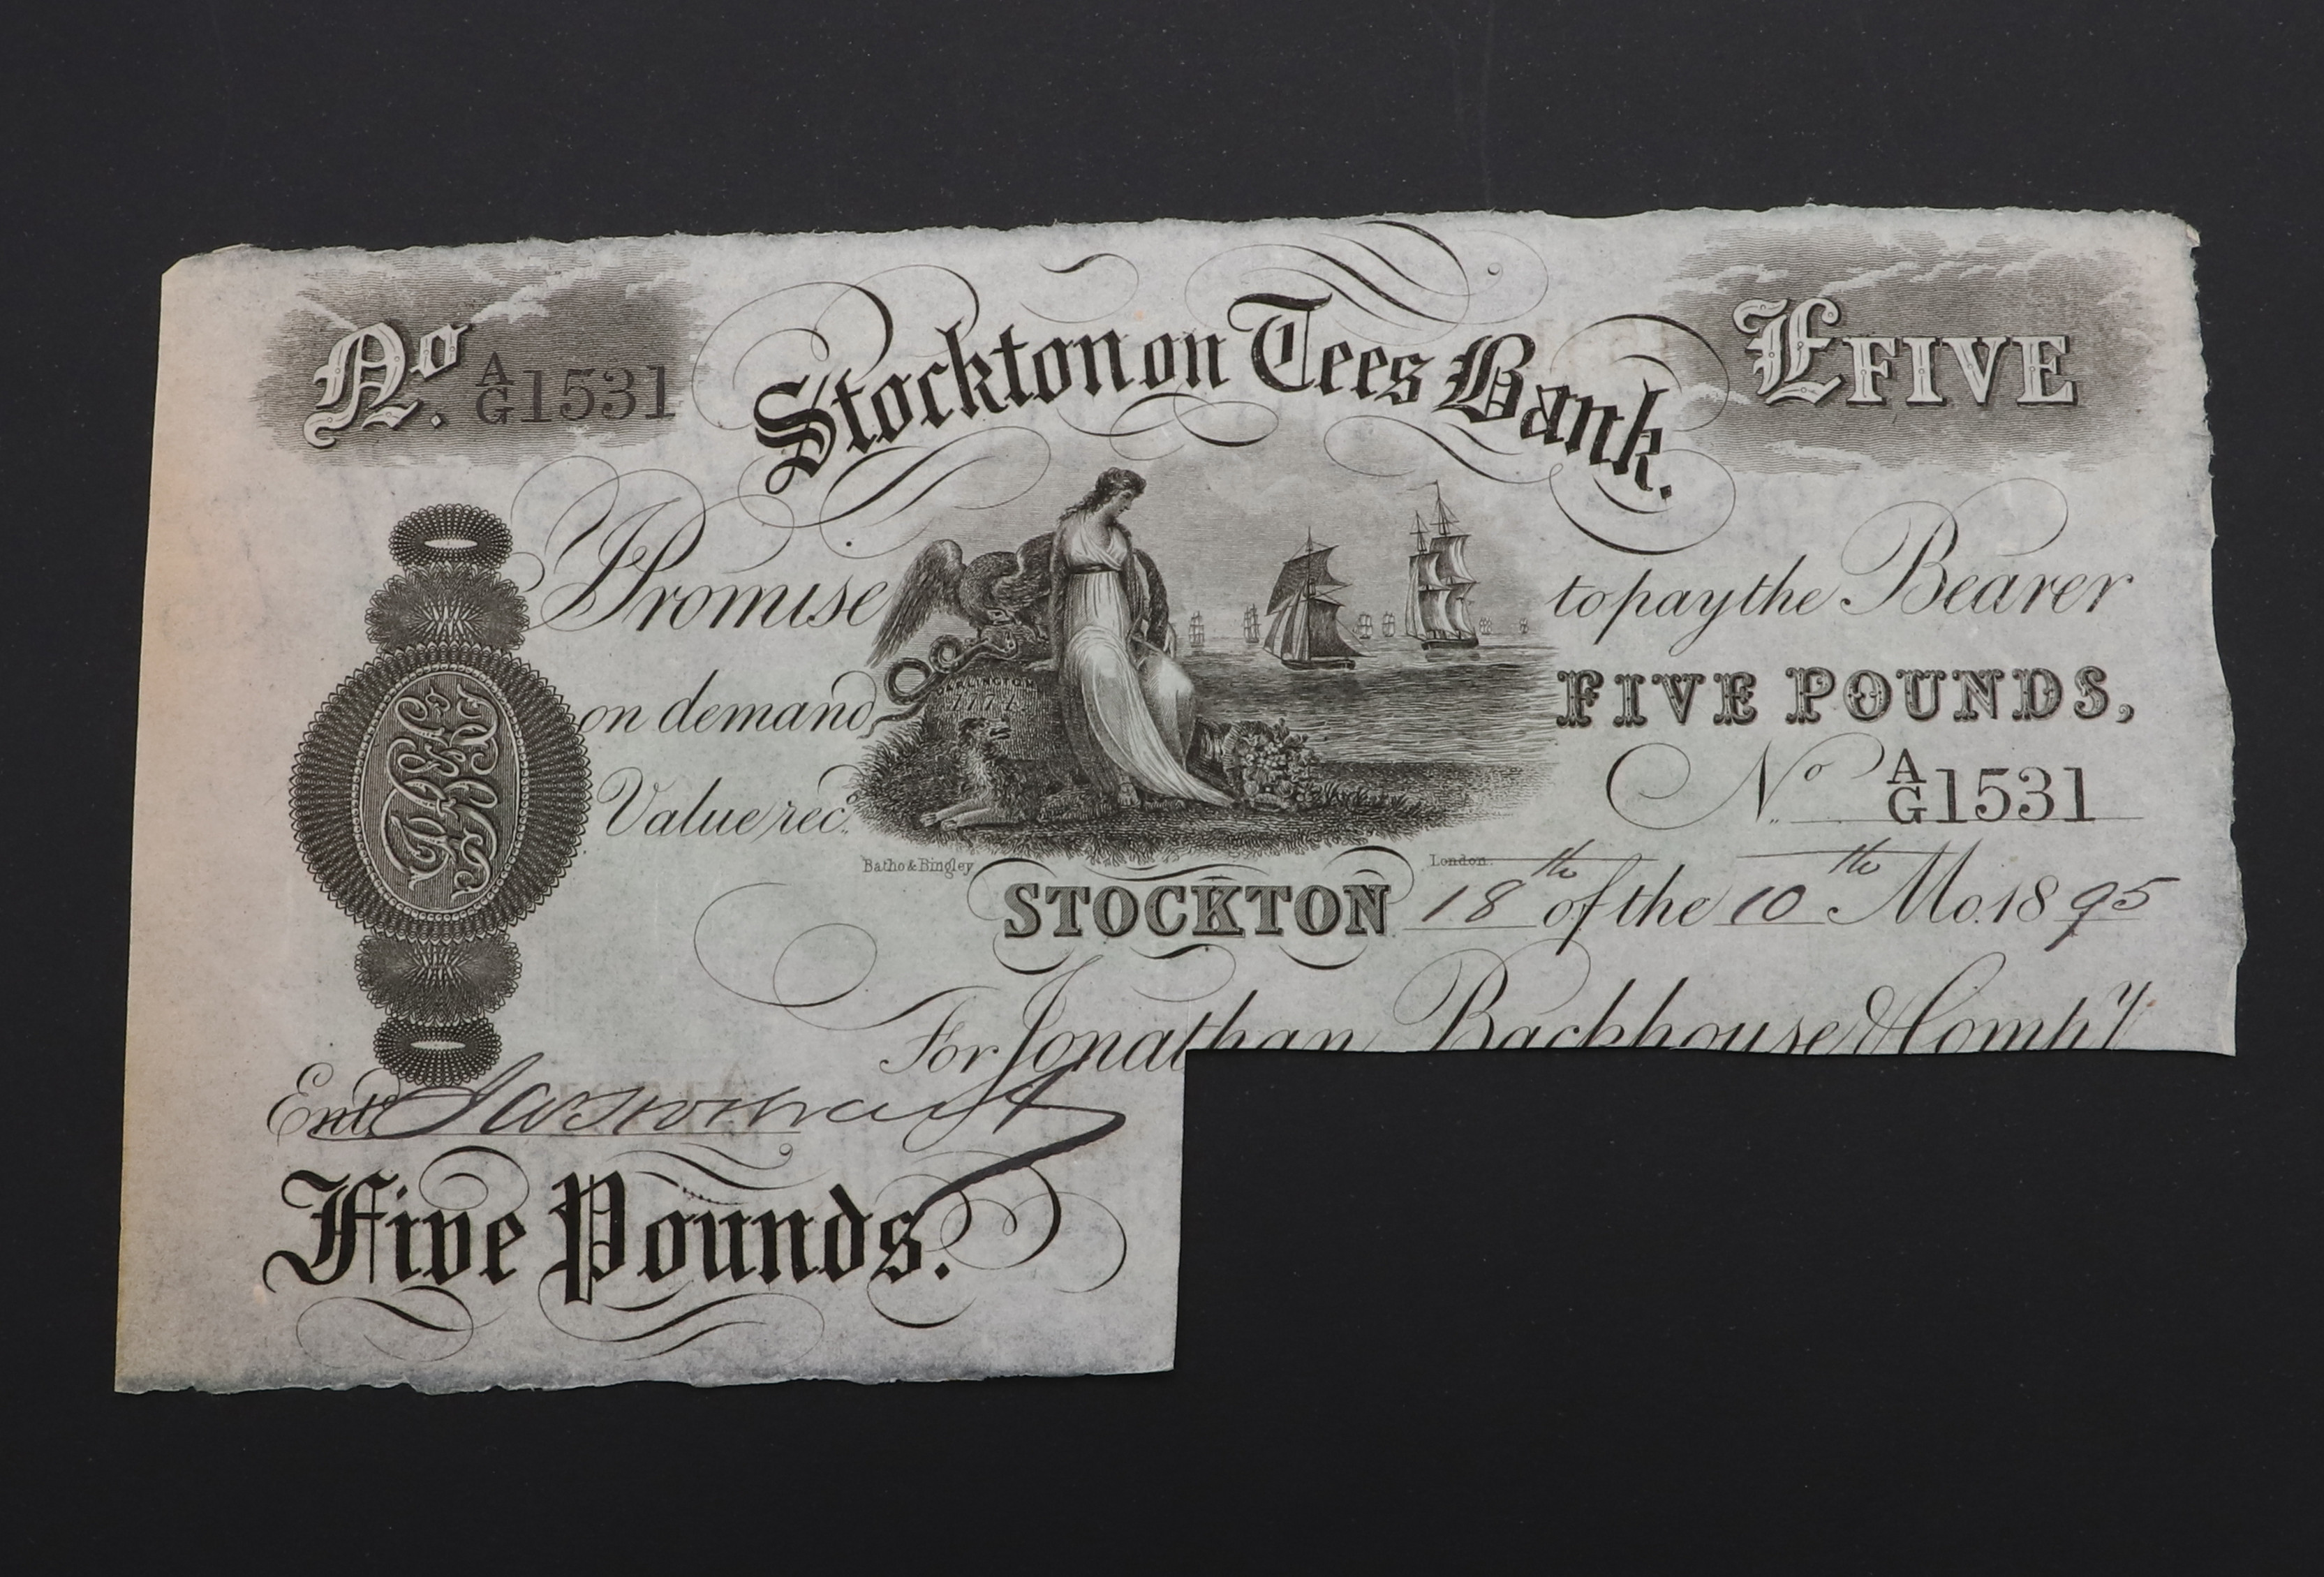 No. A/G 1531 Stockton on Tees Bank. £FIVE
I Promise to pay the Bearer
on demand FIVE POUNDS,
DARLINGTON
1774
Value recd. No A/G 1531
Batho & Bingley London.
STOCKTON 18th of the 10th Mo. 1895
For Jonathan Backhouse & Compy
Entd
Five Pounds.